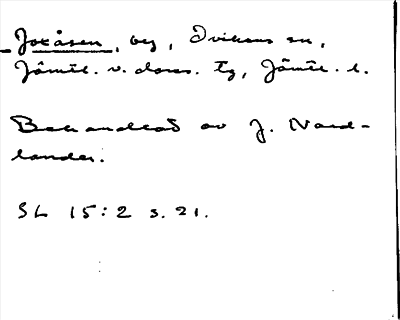 Joxåsen, by, Ovikens sn,
Jämtl. v. doms. tg, Jämtl. l.
Behandlat av J. Nord-
lander.
SL 15:2 s. 21.